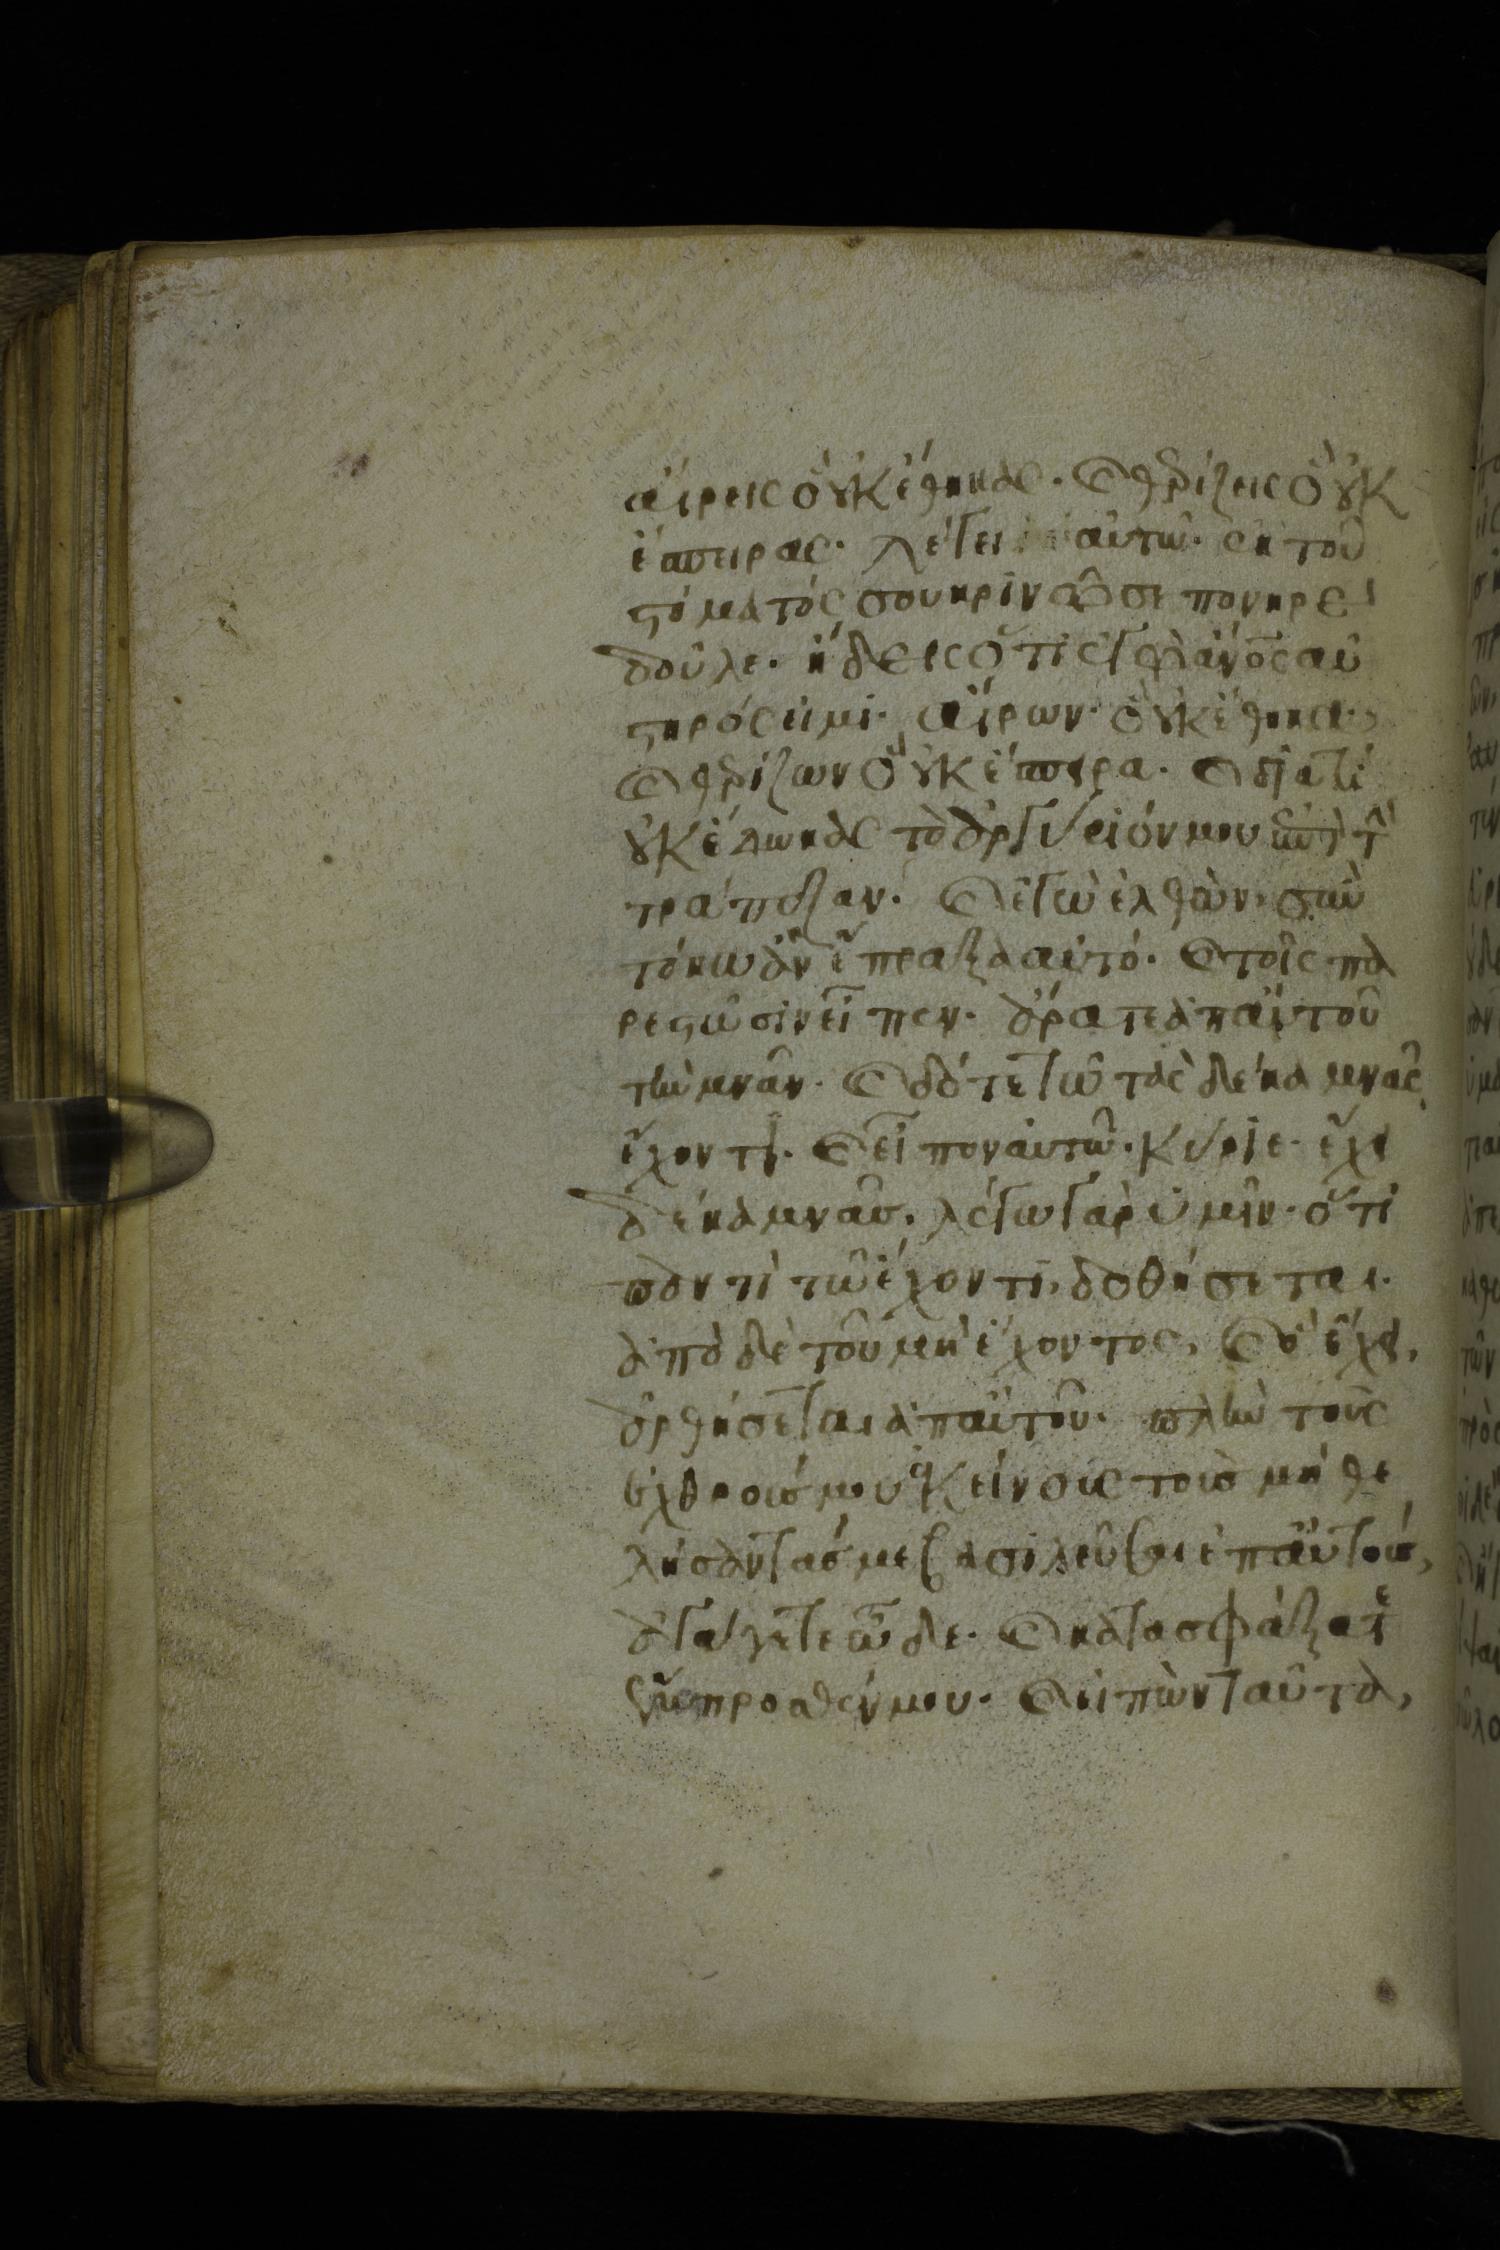 αἴρεις ὃ οὐκ ἔθηκας· καὶ θερίζεις ὃ οὐκ
ἔσπειρας· λέγει αὐτῶ· ἐκ τοῦ
στόματός σου κρίνω σε πονηρὲ
δοῦλε· ἤδεις ὅτι ἐγὼ ἄνος αὐ
στηρός εἰμι· αἴρων ὃ οὐκ ἔθηκα·
καὶ θερίζων ὃ οὐκ ἔσπειρα· καὶ διατί
οὐκ ἔδωκας τὸ ἀργύριόν μου ἐπὶ τὴν
τράπεζαν· καὶ ἐγὼ ἐλθὼν, σὺν
τόκω ἂν ἔπραξα αὐτό· καὶ τοῖς πα
ρεστῶσιν εἶπεν· ἄρατε ἀπ' αὐτοῦ
τὴν μνᾶν· καὶ δότε τῶ τὰς δέκα μνᾶς
ἔχοντι· καὶ εἶπον αὐτῶ· κύριε· ἔχει
δέκα μνᾶς. λέγω γὰρ ὑμῖν· ὅτι
παντὶ τῶ ἔχοντι, δοθήσεται·
ἀπὸ δὲ τοῦ μὴ ἔχοντος, καὶ ὃ ἔχει,
ἀρθήσεται ἀπ' αὐτοῦ· πλὴν τοὺς
ἐχθρούς μου ἐκείνους τοὺς μὴ θε
λήσαντάς με βασιλεῦσαι ἐπ' αὐτούς,
ἀγάγετε ὧδε· καὶ κατασφάξατε
ἔμπροσθέν μου· καὶ εἰπὼν ταῦτα,